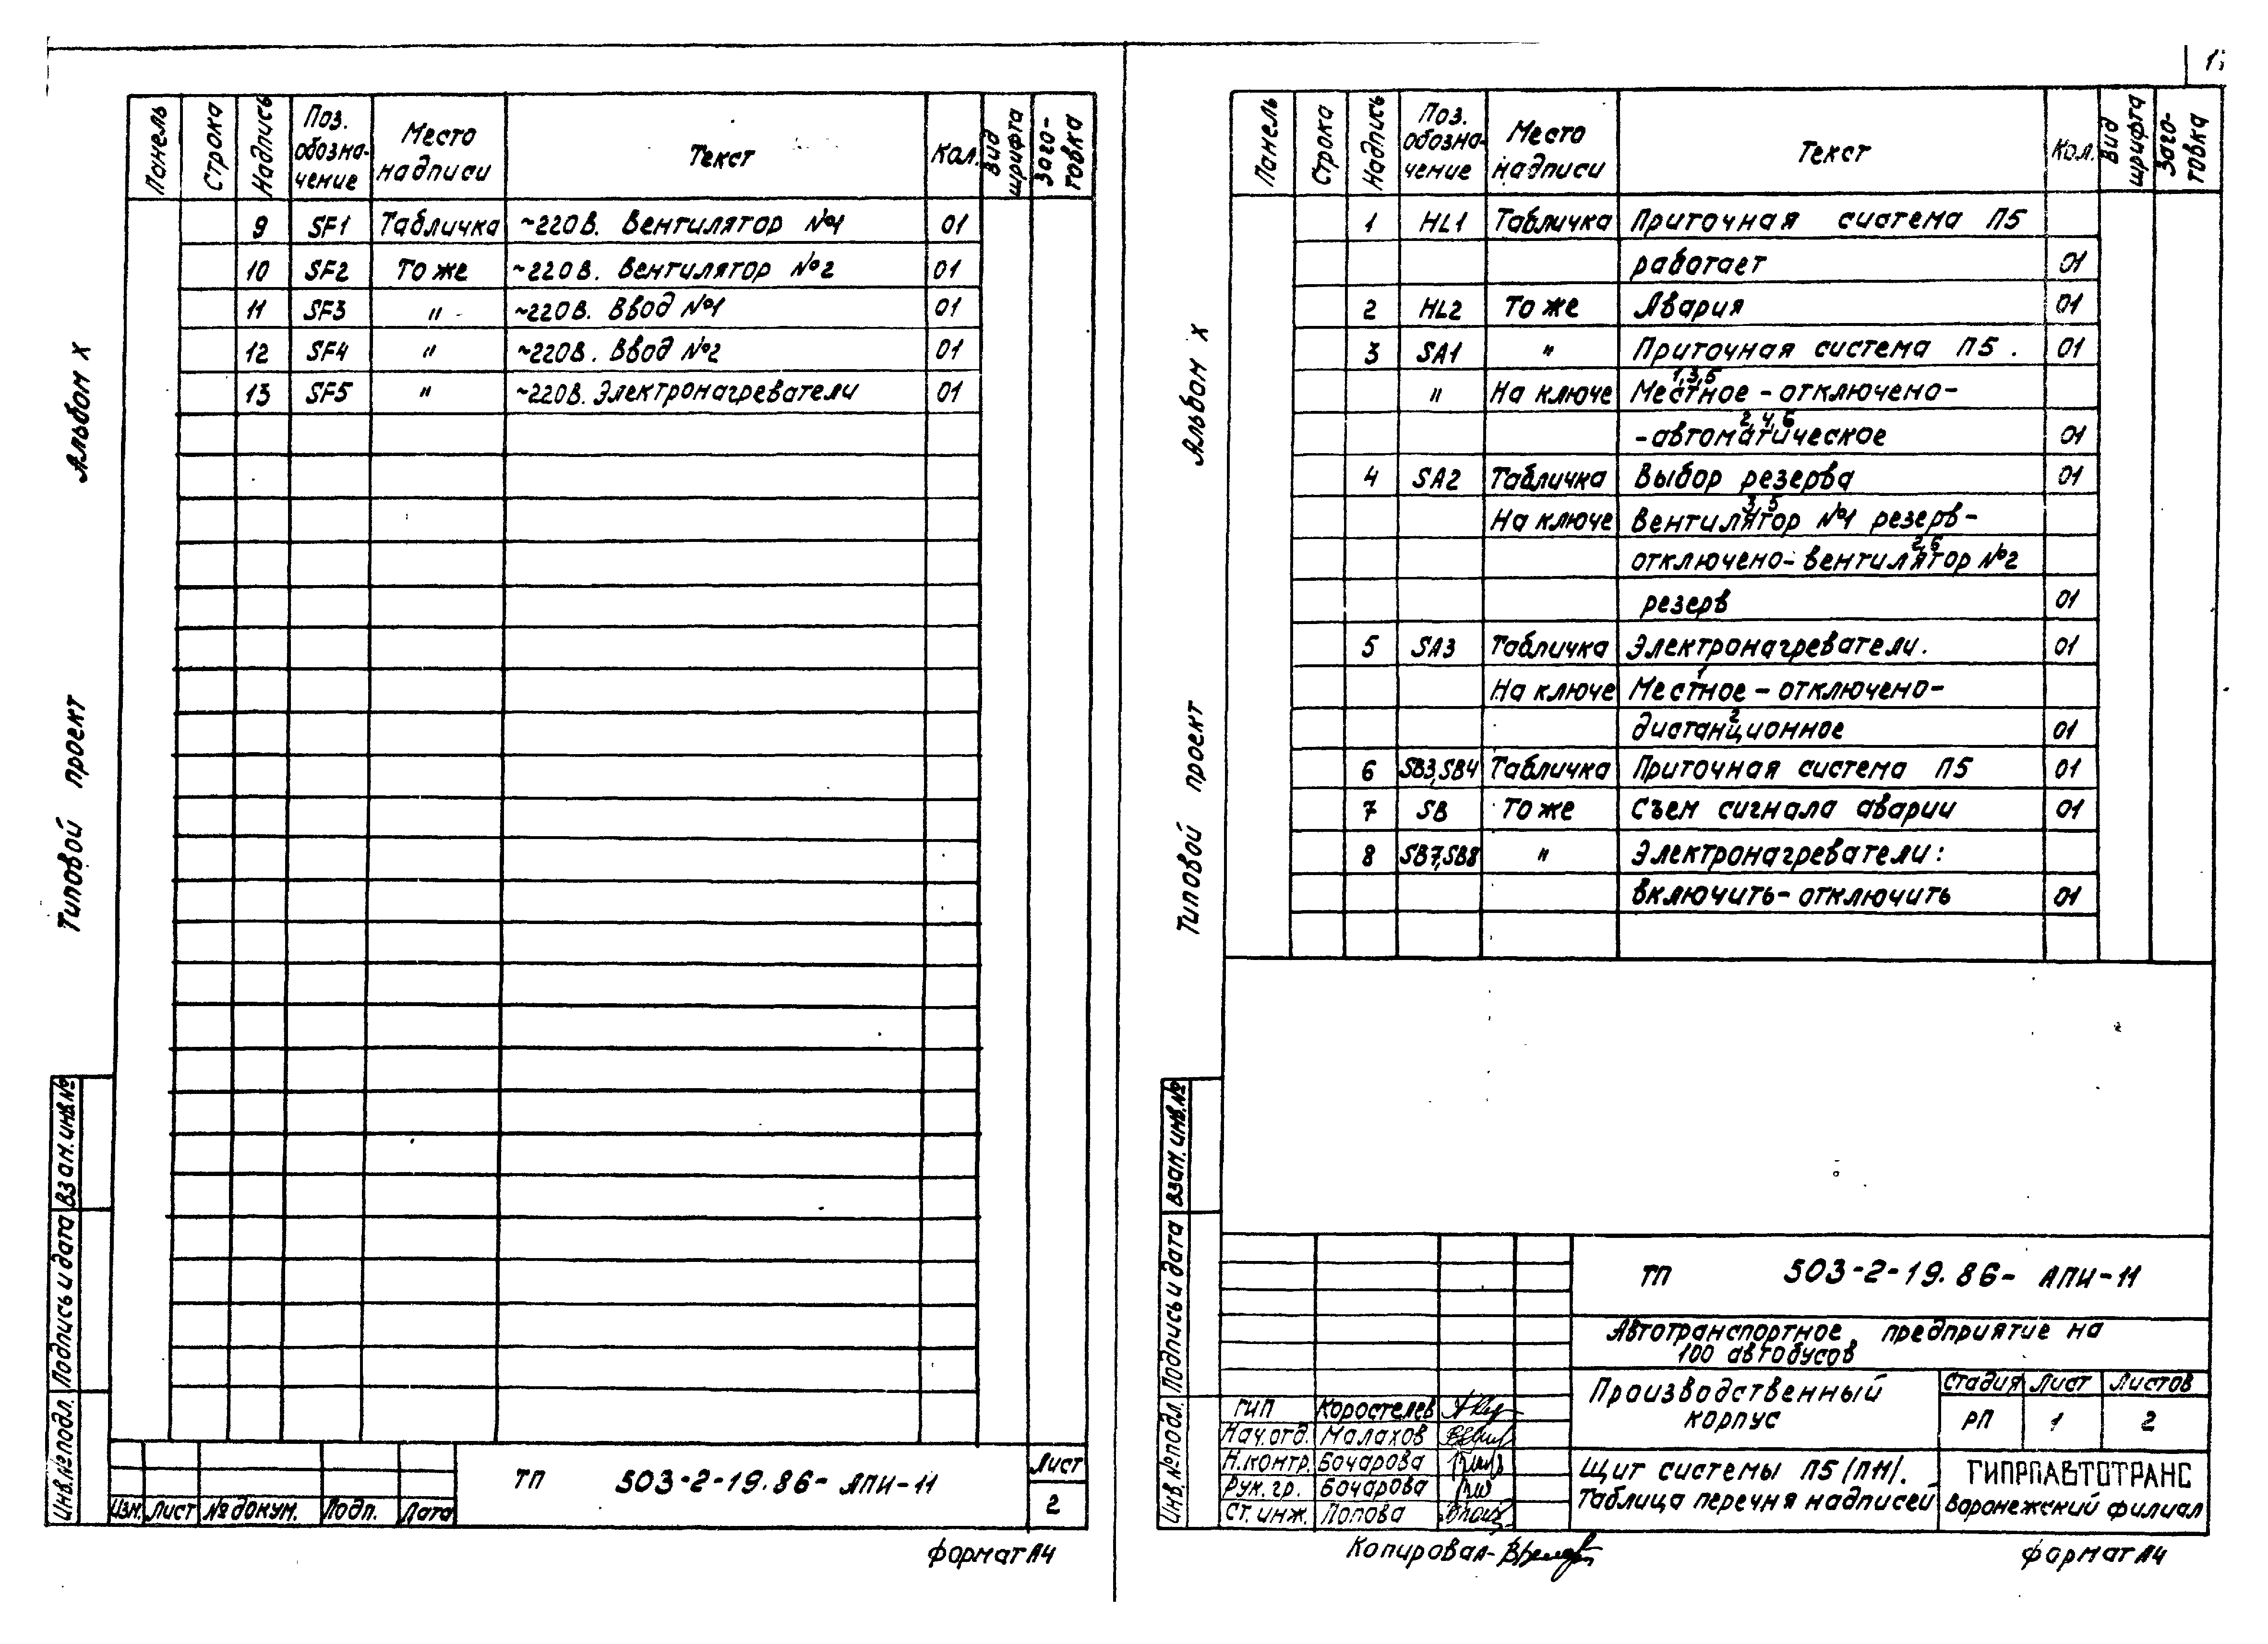 Панель Строка Надпись Поз. обозна-чение Место надписи Текст Кол. Вид шрифта Заго-товка
9 SF1 Табличка ~220В. Вентилятор №1 01
10 SF2 То же ~220В. Вентилятор №2 01
11 SF3 " ~220В. Ввод №1 01
12 SF4 " ~220В. Ввод №2 01
13 SF5 " ~220В. Электронагреватели 01
Альбом X
Типовой проект
Взам.инв.№
Подпись и дата
Инв.№подл.
Изм. Лист №докум. Подп. Дата
ТП 503-2-19.86- АПИ-11
Лист
2
формат А4
Панель Строка Надпись Поз. обозна-чение Место надписи Текст Кол. Вид шрифта Заго-товка
1 HL1 Табличка Приточная система П5
работает 01
2 HL2 То же Авария 01
3 SA1 " Приточная система П5. 01
1,3,5
" На ключе Местное - отключено-
2,4,6
-автоматическое 01
4 SA2 Табличка Выбор резерва 01
3,5
На ключе Вентилятор №1 резерв-
2,6
отключено-вентилятор №2
резерв 01
5 SA3 Табличка Электронагреватели. 01
1
На ключе Местное - отключено-
2
дистанционное 01
6 SB3,SB4 Табличка Приточная система П5 01
7 SB То же Съем сигнала аварии 01
8 SB7,SB8 " Электронагреватели:
включить-отключить 01
Альбом X
Типовой проект
Взам.инв.№
Подпись и дата
Инв.№подл.
ТП 503-2-19.86- АПИ-11
Автотранспортное предприятие на
100 автобусов
Производственный
корпус
Стадия Лист Листов
РП 1 2
ГИП Коростелев
Нач.отд. Малахов
Н.контр. Бочарова
Рук.гр. Бочарова
Ст.инж. Попова
Щит системы П5/П11/.
Таблица перечня надписей
ГИПРПАВТОТРАНС
Воронежский филиал
Копировал-
формат А4